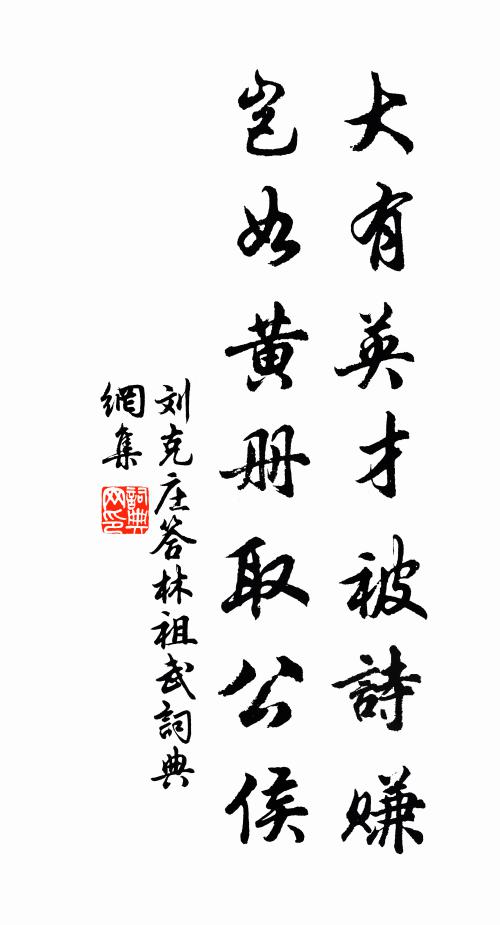 大有英才被詩賺
豈如黄册取公侯
刘克庄答林祖武詞典
網集
詞典
网印